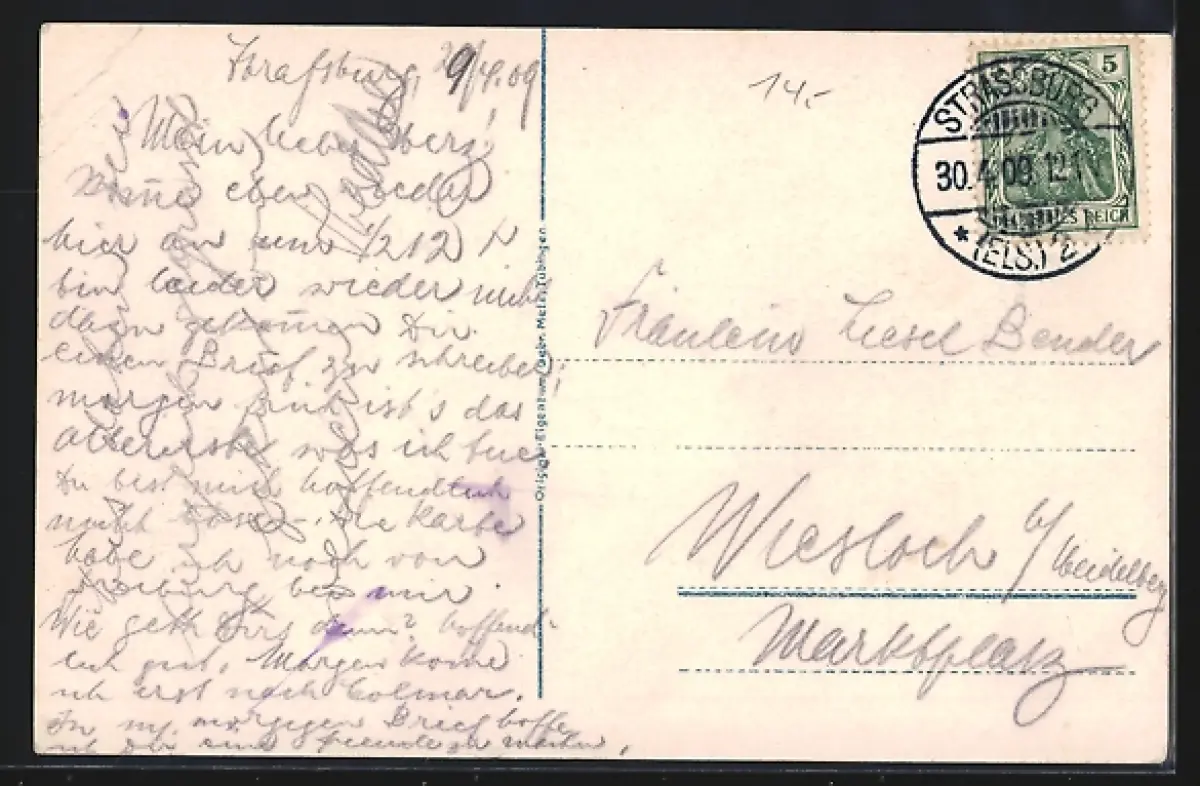 Straßburg, 29/4.09
Mein lieber Herz!
Komme eben wieder
hier an um 1/2 12 N
bin leider wieder nicht
dazu gekom̅en Dir
einen Brief zu schreiben,
morgen früh ist's das
allererste was ich tue
Du bist mir hoffendtlich
nicht böse. Die Karte
habe ich noch von
Freiburg bei mir.
Wie geht Dirs denn? hoffend-
lich gut. Morgen kom̅e
ich erst nach Colmar.
In m. morgigen Brief hoffe
ich Dir eine Freude zu machen.
Original-Eigentum Gebr. Metz, Tübingen
14.-
5
STRASSBURG
30.4.09. 12-1
* (ELS.) 2
REICH
Fräulein Liesel Bender
Wiesloch b/ Heidelberg
Marktplatz